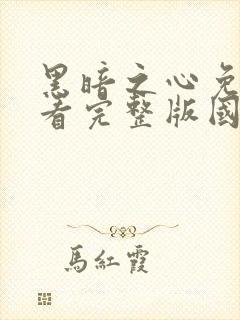 黑暗之心免
看完整版國
馬紅霞